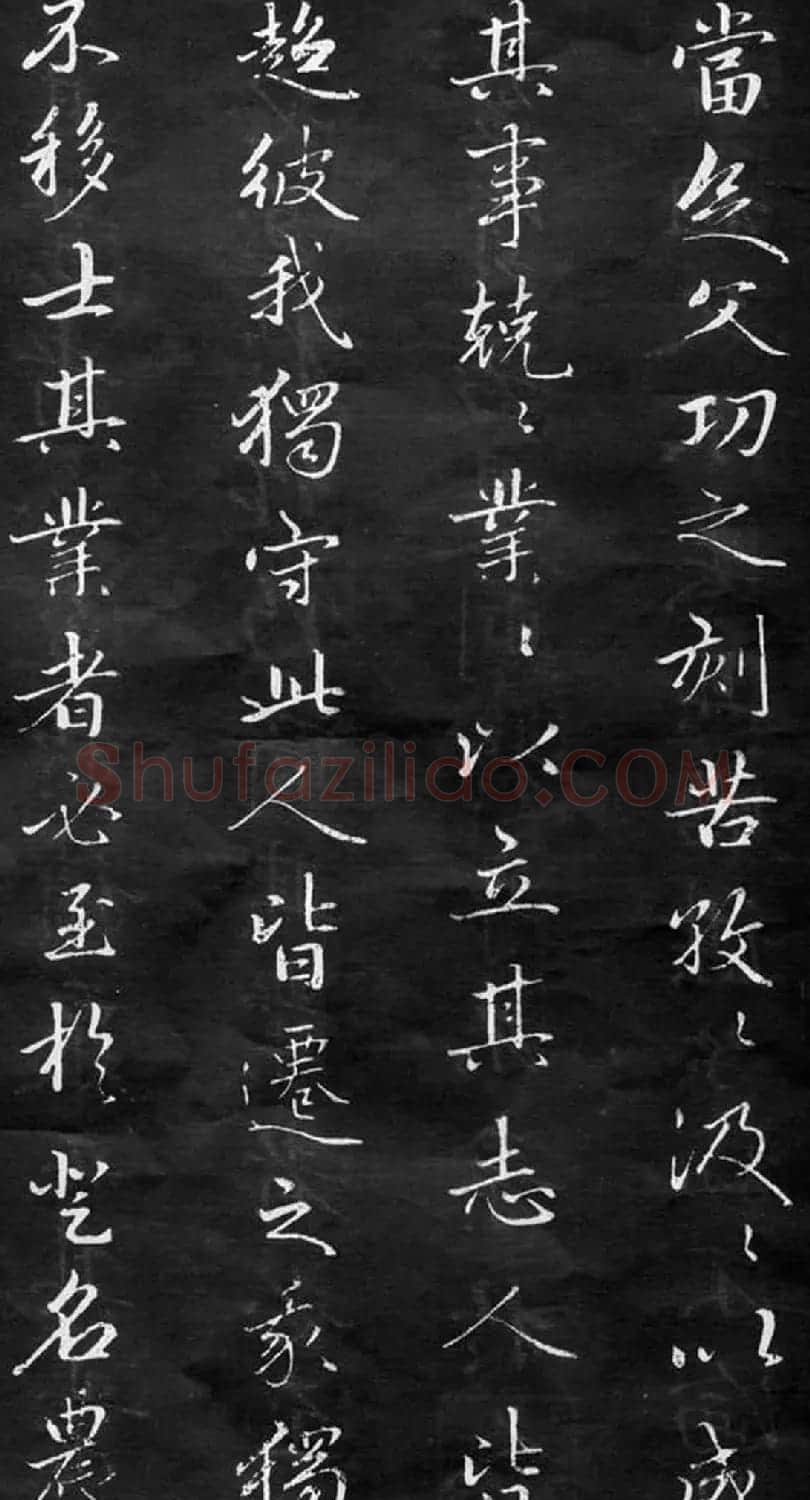 當父功之刻苦孜〻汲〻以成
其事兢〻業〻以立其志人皆
趨彼我獨守此人皆遷之我獨
不移士其業者必至於登名農
Shufazilido.COM